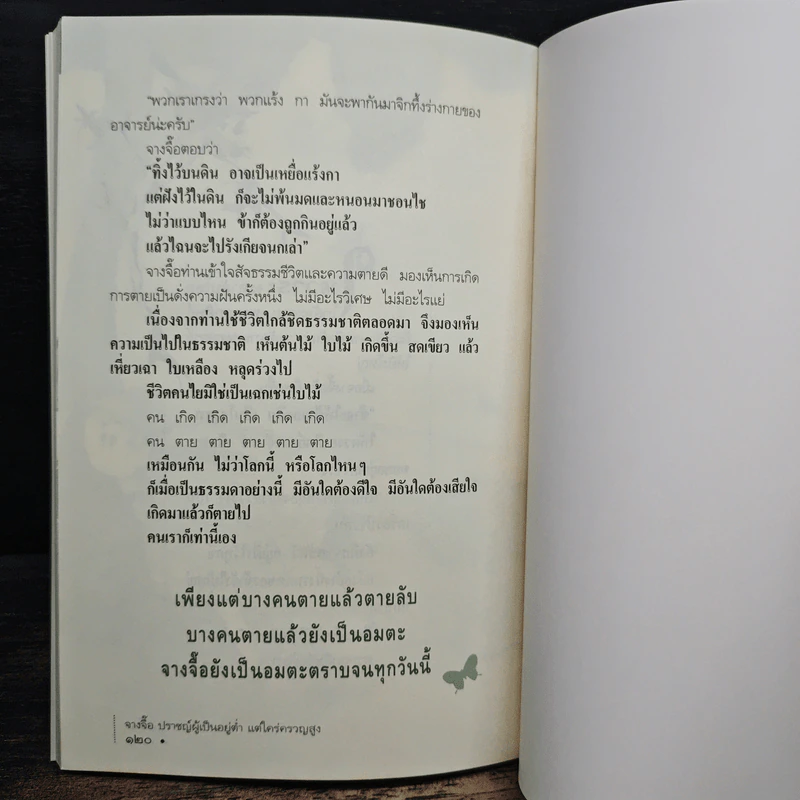 "พวกเราเกรงว่า พวกแร้ง กา มันจะพากันมาจิกทึ้งร่างกายของ
อาจารย์น่ะครับ"
จางจื๊อตอบว่า
"ทิ้งไว้บนดิน อาจเป็นเหยื่อแร้งกา
แต่ฝังไว้ในดิน ก็จะไม่พ้นมดและหนอนมาชอนไช
ไม่ว่าแบบไหน ข้าก็ต้องถูกกินอยู่แล้ว
แล้วไฉนจะไปรังเกียจนกเล่า"
จางจื๊อท่านเข้าใจสัจธรรมชีวิตและความตายดี มองเห็นการเกิด
การตายเป็นดั่งความฝันครั้งหนึ่ง ไม่มีอะไรวิเศษ ไม่มีอะไรแย่
เนื่องจากท่านใช้ชีวิตใกล้ชิดธรรมชาติตลอดมา จึงมองเห็น
ความเป็นไปในธรรมชาติ เห็นต้นไม้ ใบไม้ เกิดขึ้น สดเขียว แล้ว
เหี่ยวเฉา ใบเหลือง หลุดร่วงไป
ชีวิตคนไยมิใช่เป็นเฉกเช่นใบไม้
คน เกิด เกิด เกิด เกิด เกิด
คน ตาย ตาย ตาย ตาย ตาย
เหมือนกัน ไม่ว่าโลกนี้ หรือโลกไหนๆ
ก็เมื่อเป็นธรรมดาอย่างนี้ มีอันใดต้องดีใจ มีอันใดต้องเสียใจ
เกิดมาแล้วก็ตายไป
คนเราก็เท่านี้เอง
เพียงแต่บางคนตายแล้วตายลับ
บางคนตายแล้วยังเป็นอมตะ
จางจื๊อยังเป็นอมตะตราบจนทุกวันนี้
จางจื๊อ ปราชญ์ผู้เป็นอยู่ต่ำ แต่ใคร่ครวญสูง
๑๒๐